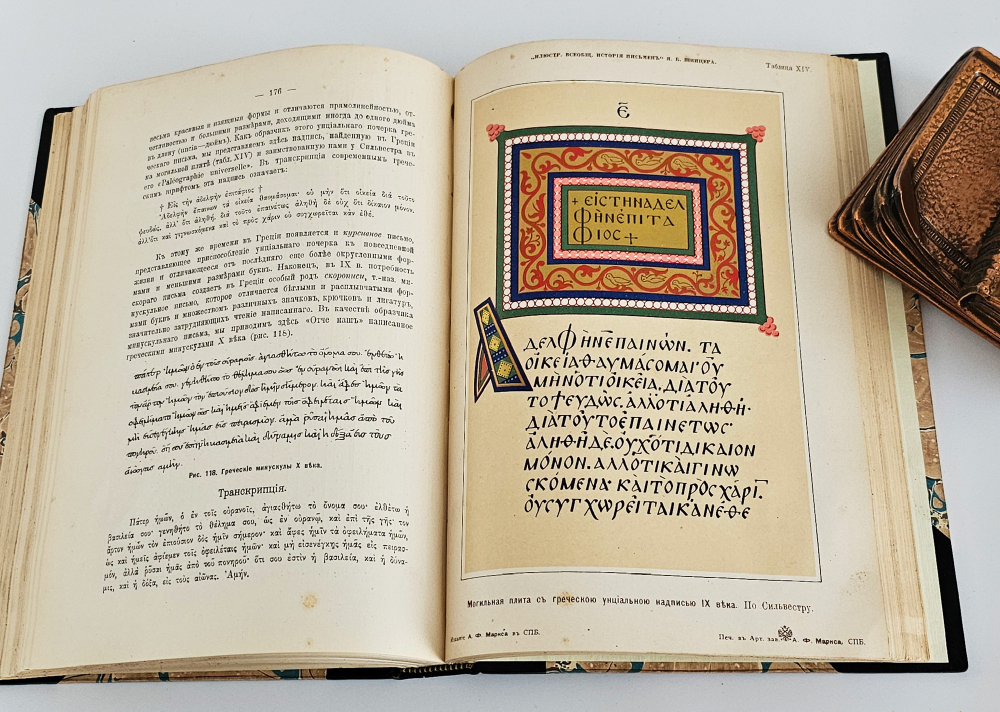 — 176 —
весьма красивыя и изящныя формы и отличаются прямолинейностью, от-
четливостью и большими размѣрами, доходящими иногда до одного дюйма
въ длину (uncia—дюймъ). Какъ образчикъ этого унціальнаго почерка гре-
ческаго письма, мы представляемъ здѣсь надпись, найденную въ Греціи
на могильной плитѣ (табл. XIV) и заимствованную нами у Сильвестра въ
его «Paléographie universelle». Въ транскрипціи современнымъ грече-
скимъ шрифтомъ эта надпись означаетъ:
† Εἰς τὴν ἀδελφὴν ἐπιτάφιος †
Ἀδελφὴν ἐπαινῶν τὰ οἰκεῖα θαυμάσομαι· οὐ μὴν ὅτι οἰκεῖα διὰ τοῦτο
ψευδῶς, ἀλλ' ὅτι ἀληθῆ, διὰ τοῦτο ἐπαινετῶς ἀληθῆ δὲ οὐχ ὅτι δίκαιον μόνον,
ἀλλ'ὅτι καὶ γιγνωσκόμενα καὶ τὸ πρὸς χάριν οὐ συγχωρεῖται κἂν ἐθέ.
Къ этому же времени въ Греціи появляется и курсивное письмо,
представляющее приспособленіе унціальнаго почерка къ повседневной
жизни и отличающееся отъ послѣдняго еще болѣе округленными фор-
мами и меньшими размѣрами буквъ. Наконецъ, въ IX в. потребность
скораго письма создаетъ въ Греціи особый родъ скорописи, т.-наз. ми-
нускульное письмо, которое отличается бѣглыми и расплывчатыми фор-
мами буквъ и множествомъ различныхъ значковъ, крючковъ и лигатуръ,
значительно затрудняющихъ чтеніе написаннаго. Въ качествѣ образчика
минускульнаго письма, мы приводимъ здѣсь «Отче нашъ» написанное
греческими минускулами X вѣка (рис. 118).
Рис. 118. Греческіе минускулы X вѣка.
Транскрипція.
Πάτερ ἡμῶν, ὁ ἐν τοῖς οὐρανοῖς, ἁγιασθήτω τὸ ὄνομα σου· ἐλθέτω ἡ
βασιλεία σου· γενηθήτο τὸ θέλημα σου, ὡς ἐν οὐρανῳ, καὶ ἐπὶ τῆς γῆς· τον
ἄρτον ἡμῶν τὸν ἐπιούσιον δὸς ἡμῖν σήμερον· καὶ ἄφες ἡμῖν τὰ ὀφειλήματα ἡμῶν,
ὡς καὶ ἡμεῖς ἀφίεμεν τοῖς ὀφειλέταις ἡμῶν· καὶ μὴ εἰσενέγκης ἡμᾶς εἰς πειρασ-
μόν, ἀλλὰ ρῦσαι ἡμᾶς ἀπὸ τοῦ πονηροῦ· ὅτι σου ἐστὶν ἡ βασιλεία, καὶ ἡ δύνα-
μις, καὶ ἡ δόξα, εἰς τοὺς αἰῶνας. Ἀμήν.
„ИЛЮСТР. ВСЕОБЩ. ИСТОРІЯ ПИСЬМЕНЪ“ Я. Б. ШНИЦЕРА.
Таблица XIV.
Є
+ ЄΙCΤΗΝΑΔЄΛ
ΦΗΝЄΠΙΤΑ
ΦΙΟC +
ΑΔЄΛΦΗΝЄΠΑΙΝΩΝ. ΤΑ
ΟΙΚЄΙΑ·ΘΑΥΜΑCΟΜΑΙ·ΟΥ
ΜΗΝΟΤΙΟΙΚЄΙΑ, ΔΙΑΤΟΥ
ΤΟΨЄΥΔΩC. ΑΛΛΟΤΙΑΛΗΘΗ·
ΔΙΑΤΟΥΤΟЄΠΑΙΝЄΤΩC·
ΑΛΗΘΗΔЄ. ΟΥΧΟΤΙΔΙΚΑΙΟΝ
ΜΟΝΟΝ. ΑΛΛΟΤΙΚΑΙΓΙΝΩ
CΚΟΜЄΝΑ· ΚΑΙΤΟΠΡΟCΧΑΡΙ.
ΟΥCΥΓΧΩΡЄΙΤΑΙΚΑΝЄΘЄ
Могильная плита съ греческою унціальною надписью IX вѣка. По Сильвестру.
Изданіе А. Ф. Маркса въ СПБ.
Печ. въ Арт. зав. А. Ф. Маркса, СПБ.